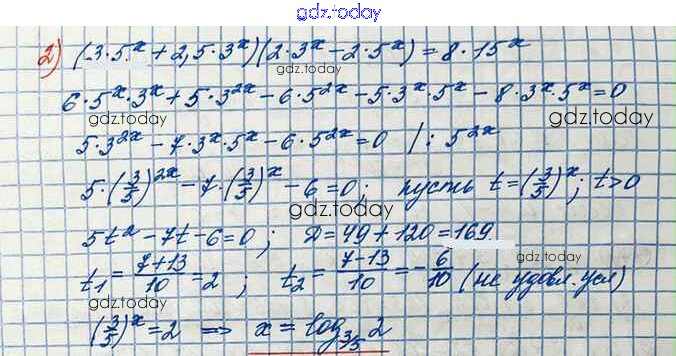 gdz.today
gdz.today
2) (3·5ˣ + 2,5·3ˣ)(2·3ˣ − 2·5ˣ) = 8·15ˣ
gdz.today
6·5ˣ·3ˣ + 5·3²ˣ − 6·5²ˣ − 5·3ˣ·5ˣ − 8·3ˣ·5ˣ = 0
gdz.today
gdz.today
5·3²ˣ − 7·3ˣ·5ˣ − 6·5²ˣ = 0 /: 5²ˣ
5·(3/5)²ˣ − 7·(3/5)ˣ − 6 = 0; пусть t = (3/5)ˣ; t>0
gdz.today
5t² − 7t − 6 = 0; D = 49 + 120 = 169
gdz.today
t₁ = (7+13)/10 = 2; t₂ = (7−13)/10 = −6/10 (не удовл. усл)
gdz.today
gdz.today
(3/5)ˣ = 2 ⇒ x = log₃/₅ 2